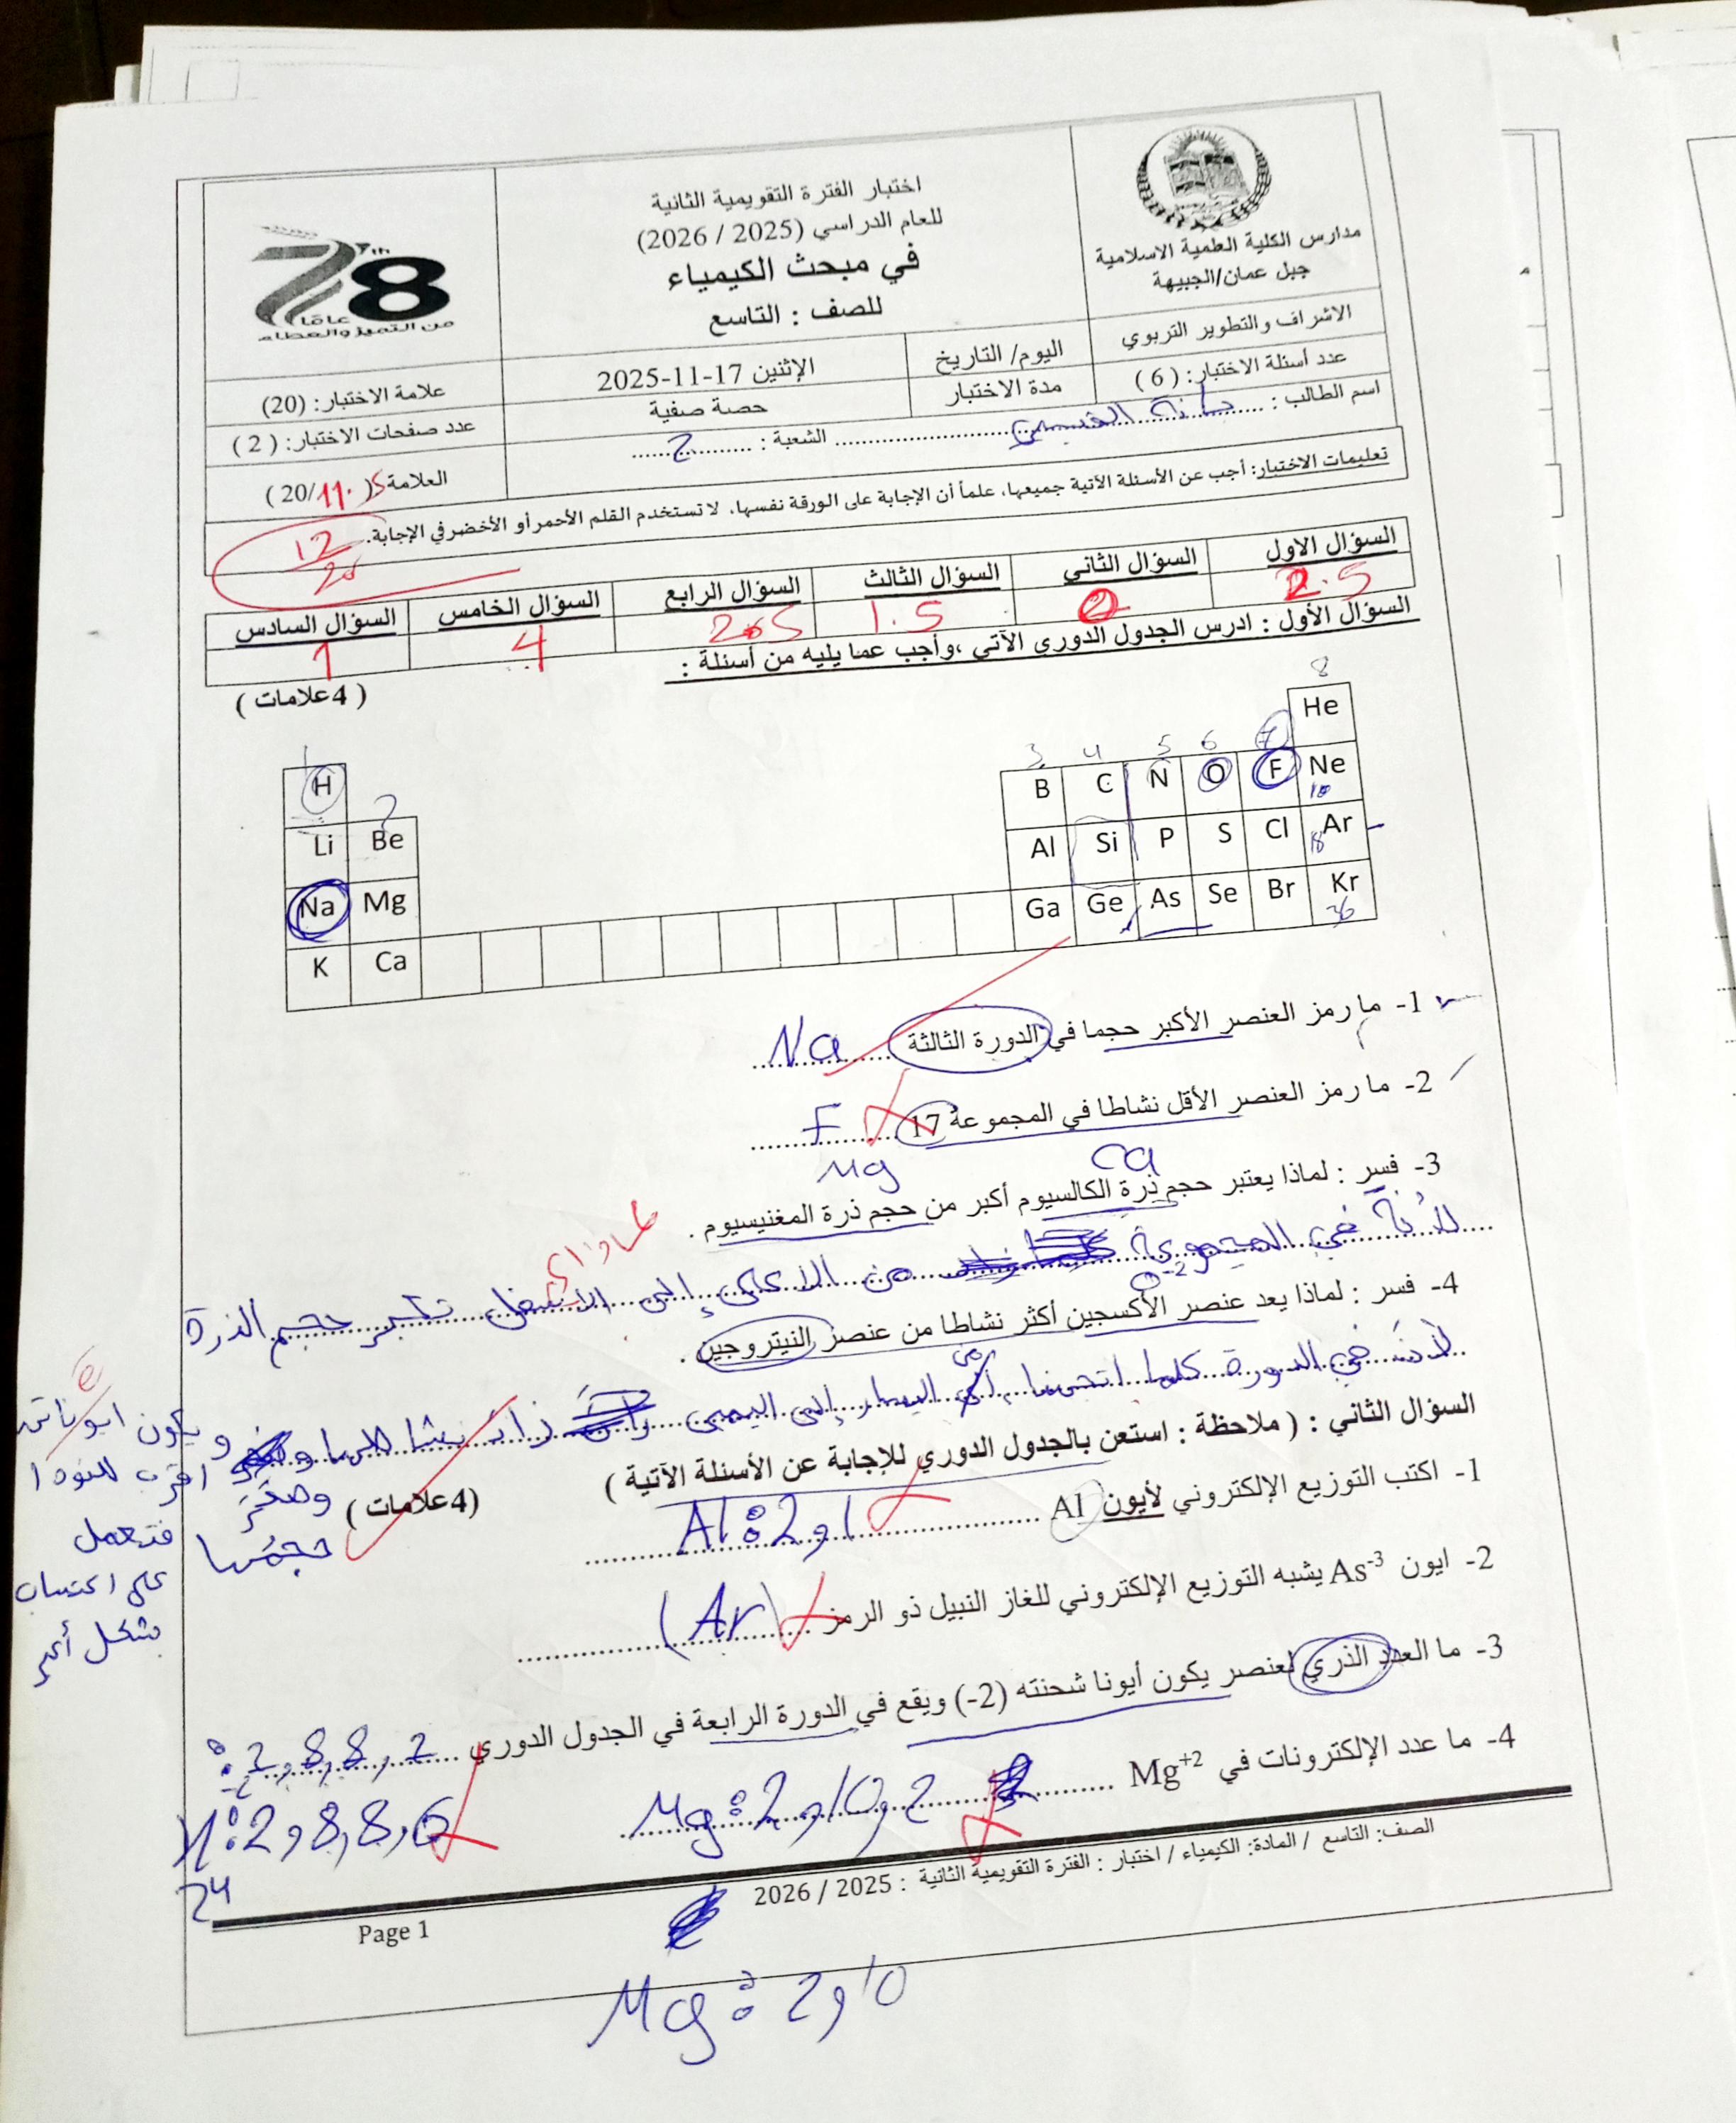 مدارس الكلية العلمية الاسلامية
جبل عمان/الجبيهة
اختبار الفترة التقويمية الثانية
للعام الدراسي (2025 / 2026)
في مبحث الكيمياء
للصف : التاسع
78 th
عامًا
من التميز والعطاء
الاشراف والتطوير التربوي
اليوم/ التاريخ
الإثنين 17-11-2025
علامة الاختبار: (20)
عدد أسئلة الاختبار: ( 6 )
مدة الاختبار
حصة صفية
عدد صفحات الاختبار: ( 2 )
اسم الطالب : .......... الشعبة : ..........
العلامة ( 20/11.5 )
تعليمات الاختبار: أجب عن الأسئلة الآتية جميعها، علماً أن الإجابة على الورقة نفسها، لا تستخدم القلم الأحمر أو الأخضر في الإجابة.
12
20
السؤال الاول السؤال الثاني السؤال الثالث السؤال الرابع السؤال الخامس السؤال السادس
2.5 1.5 2.5 4 1
السؤال الأول : ادرس الجدول الدوري الآتي ،وأجب عما يليه من أسئلة :
( 4علامات )
8
He
1 2 3 4 5 6 7
H
Li Be B C N O F Ne 10
Na Mg Al Si P S Cl Ar 18
K Ca Ga Ge As Se Br Kr 36
1- ما رمز العنصر الأكبر حجما في الدورة الثالثة .......... Na
2- ما رمز العنصر الأقل نشاطا في المجموعة 17 .......... F
Ca Mg
3- فسر : لماذا يعتبر حجم ذرة الكالسيوم أكبر من حجم ذرة المغنيسيوم .
لأنه في المجموعة من الأعلى إلى الأسفل تكبر حجم الذرة
لماذا؟
O-2
4- فسر : لماذا يعد عنصر الأكسجين أكثر نشاطا من عنصر النيتروجين .
لأنه في الدورة كلما اتجهنا من اليسار إلى اليمين زاد نشاطها
وصغر حجمها
ويكون
اقرب للنواة
فتعمل
على اكتساب
بشكل أكبر
السؤال الثاني : ( ملاحظة : استعن بالجدول الدوري للإجابة عن الأسئلة الآتية )
(4علامات )
1- اكتب التوزيع الإلكتروني لأيون Al .......... Al: 2,1
2- ايون As-3 يشبه التوزيع الإلكتروني للغاز النبيل ذو الرمز .......... (Ar)
3- ما العدد الذري لعنصر يكون أيونا شحنته (2-) ويقع في الدورة الرابعة في الجدول الدوري ..........
: 2,8,8,2
: 2,8,8,6
24
4- ما عدد الإلكترونات في Mg+2 .......... Mg: 2,10,2
الصف: التاسع / المادة: الكيمياء / اختبار : الفترة التقويمية الثانية : 2025 / 2026
Page 1
Mg: 2,10